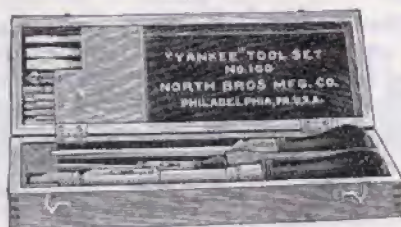 "YANKEE" TOOL SET
NO. 100
NORTH BROS MFG. CO.
PHILADELPHIA, PA. U.S.A.